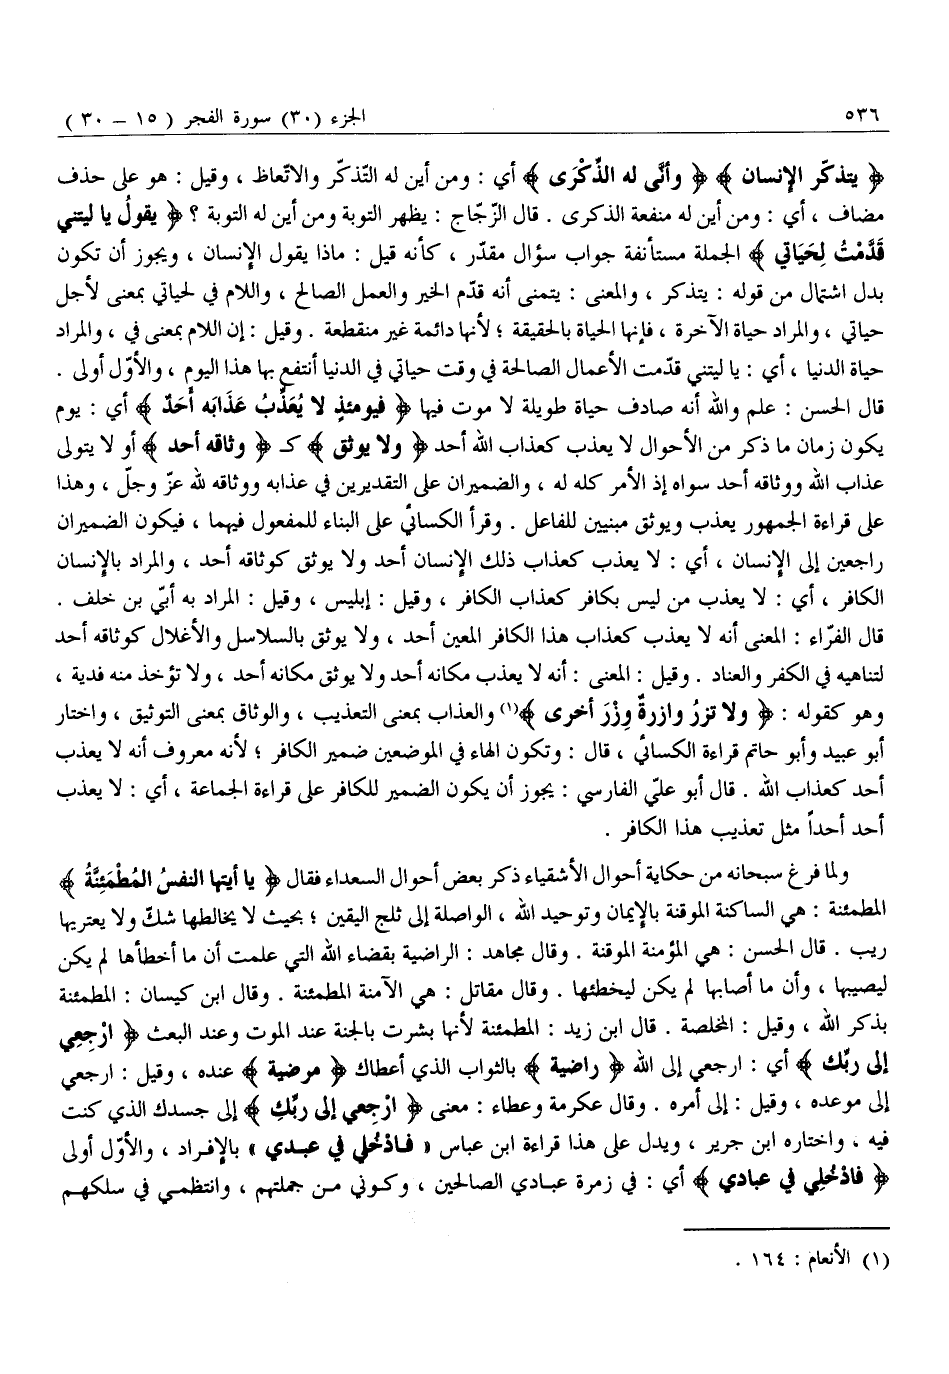 ٥٣٦ الجزء (٣٠) سورة الفجر ( ١٥ – ٣٠ )
﴿ يتذكّر الإنسان ﴾ ﴿ وأنَّى له الذِّكْرَى ﴾ أي : ومن أين له التّذكّر والاتّعاظ ، وقيل : هو على حذف
مضاف ، أي : ومن أين له منفعة الذكرى . قال الزّجّاج : يظهر التوبة ومن أين له التوبة ؟ ﴿ يقولُ يا ليتني
قَدَّمْتُ لِحَيَاتي ﴾ الجملة مستأنفة جواب سؤال مقدّر ، كأنه قيل : ماذا يقول الإنسان ، ويجوز أن تكون
بدل اشتمال من قوله : يتذكر ، والمعنى : يتمنى أنه قدّم الخير والعمل الصالح ، واللام في لحياتي بمعنى لأجل
حياتي ، والمراد حياة الآخرة ، فإنها الحياة بالحقيقة ؛ لأنها دائمة غير منقطعة . وقيل : إن اللام بمعنى في ، والمراد
حياة الدنيا ، أي : يا ليتني قدّمت الأعمال الصالحة في وقت حياتي في الدنيا أنتفع بها هذا اليوم ، والأوّل أولى .
قال الحسن : علم والله أنه صادف حياة طويلة لا موت فيها ﴿ فيومئذٍ لا يُعَذِّبُ عَذَابَه أَحَدٌ ﴾ أي : يوم
يكون زمان ما ذكر من الأحوال لا يعذب كعذاب الله أحد ﴿ ولا يوثق ﴾ كـ ﴿ وثاقه أحد ﴾ أو لا يتولى
عذاب الله ووثاقه أحد سواه إذ الأمر كله له ، والضميران على التقديرين في عذابه ووثاقه لله عزّ وجلّ ، وهذا
على قراءة الجمهور يعذب ويوثق مبنيين للفاعل . وقرأ الكسائيّ على البناء للمفعول فيهما ، فيكون الضميران
راجعين إلى الإنسان ، أي : لا يعذب كعذاب ذلك الإنسان أحد ولا يوثق كوثاقه أحد ، والمراد بالإنسان
الكافر ، أي : لا يعذب من ليس بكافر كعذاب الكافر ، وقيل : إبليس ، وقيل : المراد به أبيّ بن خلف .
قال الفرّاء : المعنى أنه لا يعذب كعذاب هذا الكافر المعين أحد ، ولا يوثق بالسلاسل والأغلال كوثاقه أحد
لتناهيه في الكفر والعناد . وقيل : المعنى : أنه لا يعذب مكانه أحد ولا يوثق مكانه أحد ، ولا تؤخذ منه فدية ،
وهو كقوله : ﴿ ولا تزرُ وازرةٌ وِزْرَ أخرى ﴾(١) والعذاب بمعنى التعذيب ، والوثاق بمعنى التوثيق ، واختار
أبو عبيد وأبو حاتم قراءة الكسائيّ ، قال : وتكون الهاء في الموضعين ضمير الكافر ؛ لأنه معروف أنه لا يعذب
أحد كعذاب الله . قال أبو عليّ الفارسي : يجوز أن يكون الضمير للكافر على قراءة الجماعة ، أي : لا يعذب
أحد أحداً مثل تعذيب هذا الكافر .
ولما فرغ سبحانه من حكاية أحوال الأشقياء ذكر بعض أحوال السعداء فقال ﴿ يا أيتها النفسُ المُطْمَئِنَّةُ ﴾
المطمئنة : هي الساكنة الموقنة بالإيمان وتوحيد الله ، الواصلة إلى ثلج اليقين ؛ بحيث لا يخالطها شكّ ولا يعتريها
ريب . قال الحسن : هي المؤمنة الموقنة . وقال مجاهد : الراضية بقضاء الله التي علمت أن ما أخطأها لم يكن
ليصيبها ، وأن ما أصابها لم يكن ليخطئها . وقال مقاتل : هي الآمنة المطمئنة . وقال ابن كيسان : المطمئنة
بذكر الله ، وقيل : المخلصة . قال ابن زيد : المطمئنة لأنها بشرت بالجنة عند الموت وعند البعث ﴿ ارْجِعِي
إلى ربِّك ﴾ أي : ارجعي إلى الله ﴿ راضية ﴾ بالثواب الذي أعطاك ﴿ مرضية ﴾ عنده ، وقيل : ارجعي
إلى موعده ، وقيل : إلى أمره . وقال عكرمة وعطاء : معنى ﴿ ارْجِعي إلى ربِّكِ ﴾ إلى جسدك الذي كنت
فيه ، واختاره ابن جرير ، ويدل على هذا قراءة ابن عباس « فـادْخُلي في عبـدي » بالإفـراد ، والأوّل أولى
﴿ فَادْخُلِي في عبادي ﴾ أي : في زمرة عبـادي الصالحين ، وكـوني مـن جملتهم ، وانتظمـي في سلكهـم
(١) الأنعام : ١٦٤ .